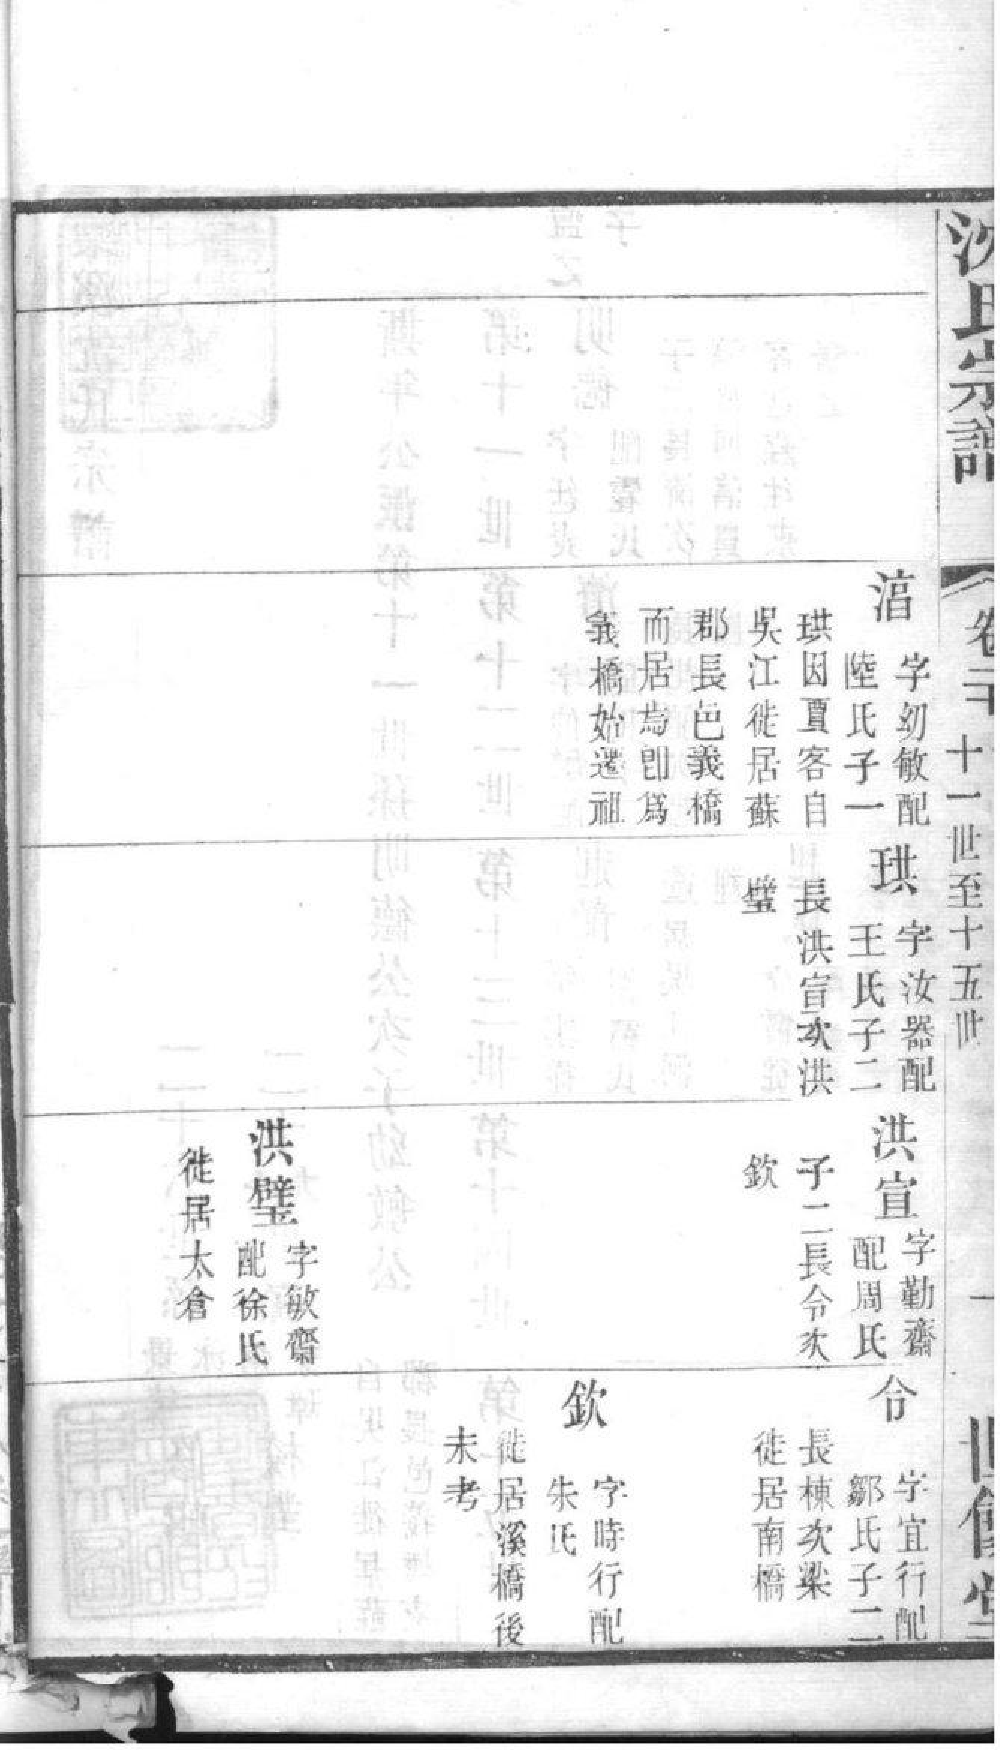 沈氏宗譜
卷二十
十一世至十五世
一
世
湻
字幼敏配
陸氏子一
珙因賈客自
吳江徙居蘇
郡長邑義橋
而居焉卽爲
義橋始遷祖
珙
字汝器配
王氏子二
長洪宣次洪
璧
洪宣
字勤齋
配周氏
子二長令次
欽
洪璧
字敏齋
配徐氏
徙居太倉
令
字宜行配
鄒氏子二
長棟次梁
徙居南橋
欽
字時行配
朱氏
徙居溪橋後
未考